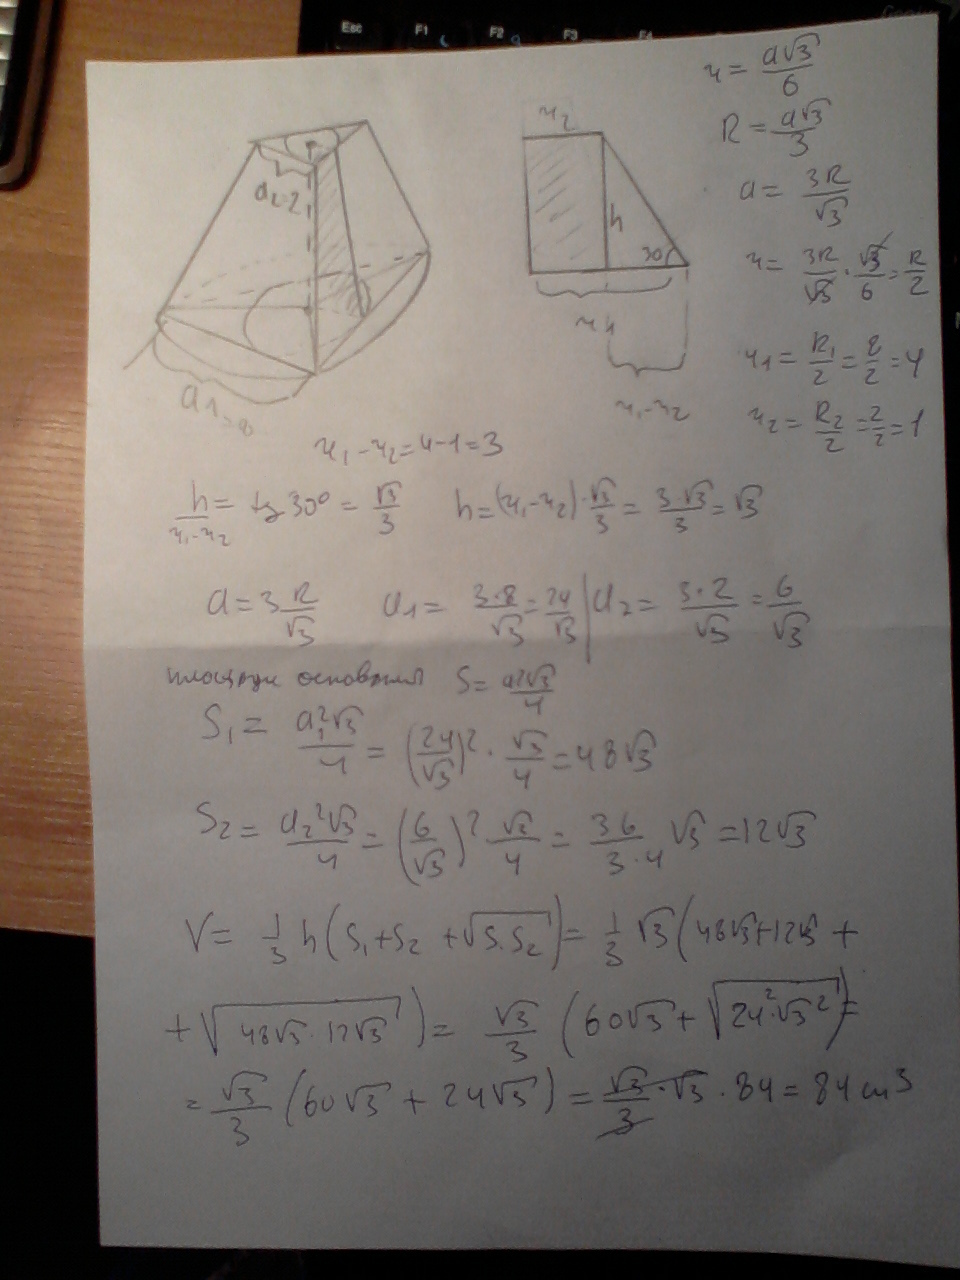 Esc F1 F2 F3 F4
r = a√3/6
R = a√3/3
a = 3R/√3
r = 3R/√3 · √3/6 = R/2
r₁ = R₁/2 = 8/2 = 4
r₂ = R₂/2 = 2/2 = 1
a₂=2
a₁=8
r₂
h
30
r₁
r₁-r₂
r₁-r₂=4-1=3
h/r₁-r₂ = tg 30° = √3/3 h=(r₁-r₂)·√3/3 = 3·√3/3 = √3
a = 3 R/√3 a₁ = 3·8/√3 = 24/√3 | a₂ = 3·2/√3 = 6/√3
площади основания S = a²√3/4
S₁ = a₁²√3/4 = (24/√3)² · √3/4 = 48√3
S₂ = a₂²√3/4 = (6/√3)² √3/4 = 36/3·4 √3 = 12√3
V = 1/3 h(S₁+S₂+√S₁S₂) = 1/3 √3(48√3+12√3 +
+ √48√3·12√3) = √3/3 (60√3 + √24²·√3²) =
= √3/3 (60√3 + 24√3) = √3/3 · √3 · 84 = 84 cm³